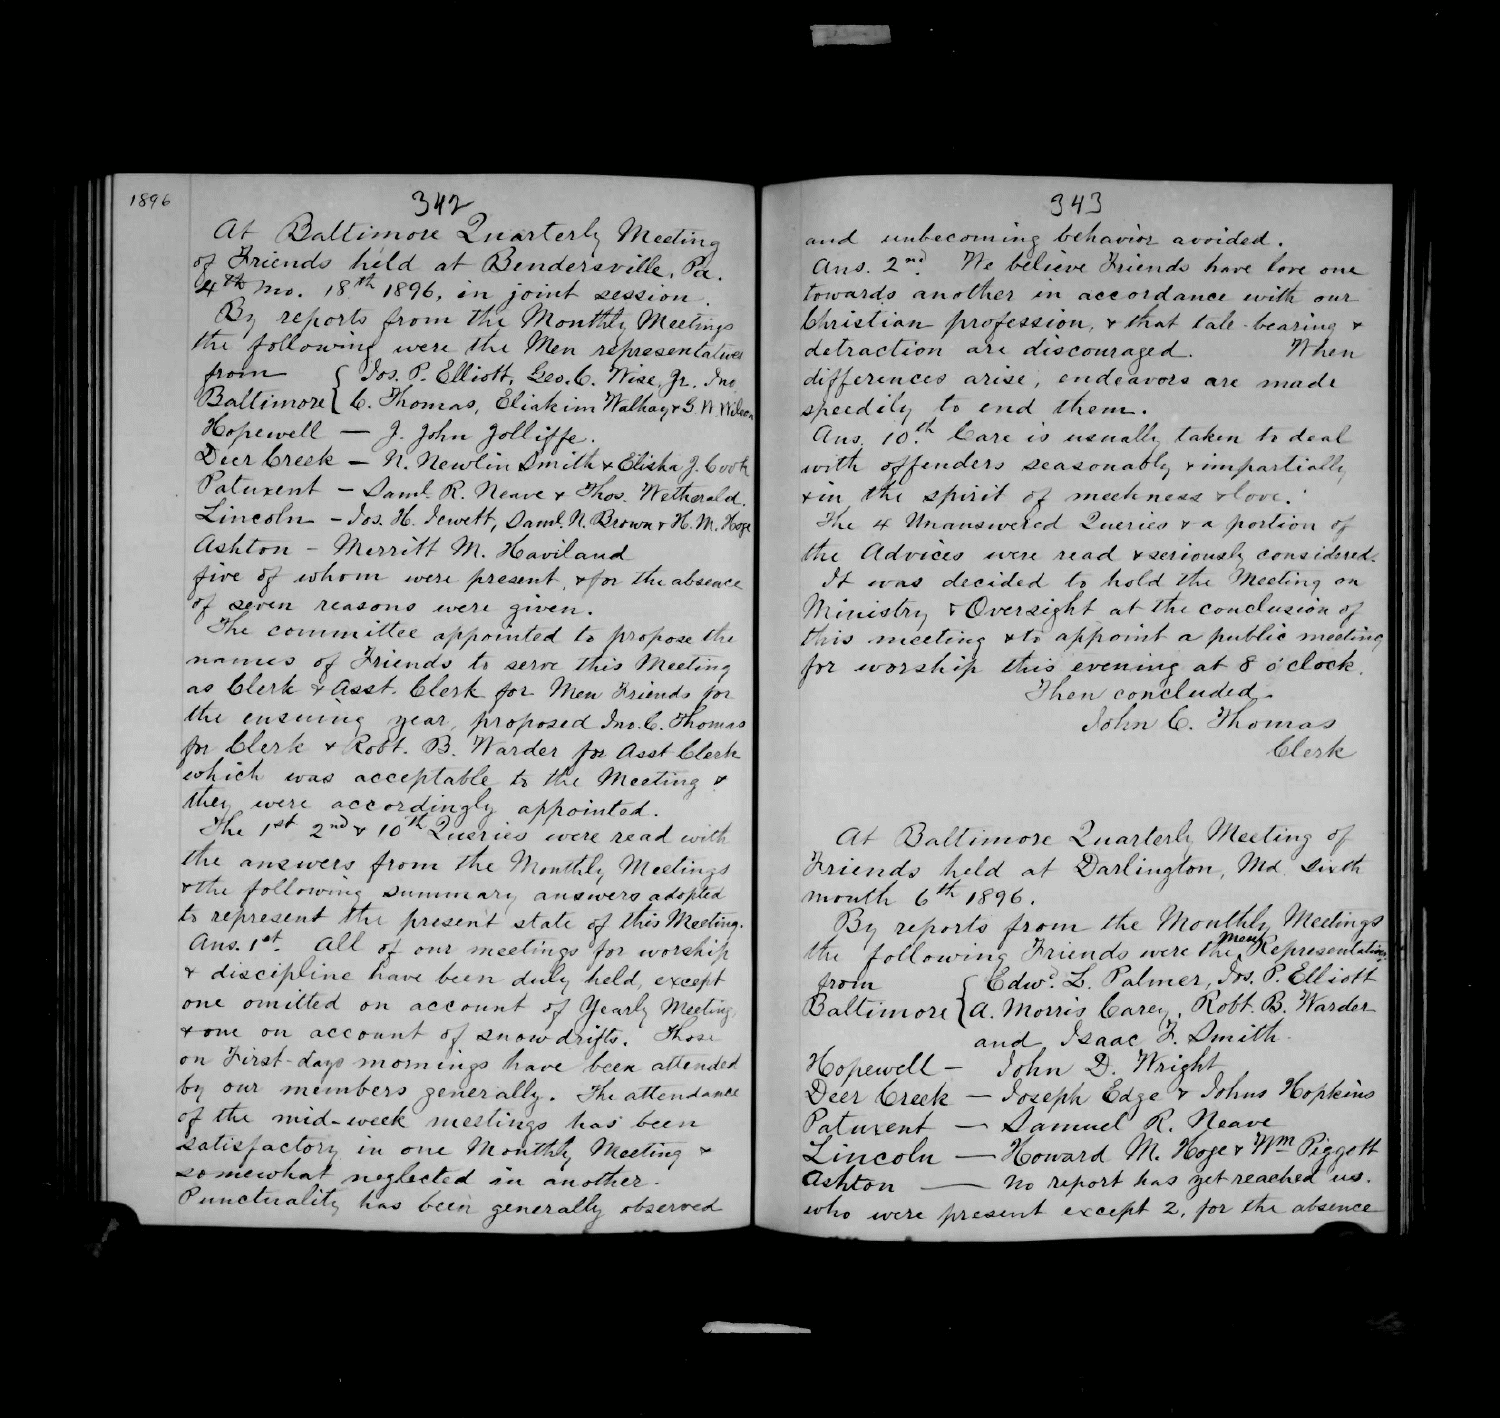 1896
342
At Baltimore Quarterly Meeting
of Friends held at Bendersville, Pa.
4th mo. 18th 1896, in joint session.
By reports from the Monthly Meetings
the following were the Men representatives
from { Jos. P. Elliott, Geo. C. Wise, Jr. Jno.
Baltimore { C. Thomas, Eliakim Walhay & G. W. Wilson
Hopewell — J. John Jolliffe.
Deer Creek — N. Newlin Smith & Elisha J. Cook
Patuxent — Saml. R. Neave & Thos. Wetherald.
Lincoln — Jos. H. Jewett, Saml. N. Brown & H. M. Hoge
Ashton — Merritt M. Haviland
five of whom were present, & for the absence
of seven reasons were given.
The committee appointed to propose the
names of Friends to serve this Meeting
as Clerk & Asst. Clerk for Men Friends for
the ensuing year, proposed Jno. C. Thomas
for Clerk & Robt. B. Warder for Asst Clerk
which was acceptable to the Meeting &
they were accordingly appointed.
The 1st 2nd & 10th Queries were read with
the answers from the Monthly Meetings
& the following summary answers adopted
to represent the present state of this Meeting.
Ans. 1st. All of our meetings for worship
& discipline have been duly held, except
one omitted on account of Yearly Meeting
& one on account of snow drifts. Those
on First-days mornings have been attended
by our members generally. The attendance
of the mid-week meetings has been
satisfactory in one Monthly Meeting &
somewhat neglected in another.
Punctuality has been generally observed
343
and unbecoming behavior avoided.
Ans. 2nd. We believe Friends have love one
towards another in accordance with our
Christian profession, & that tale-bearing &
detraction are discouraged. When
differences arise, endeavors are made
speedily to end them.
Ans. 10.th Care is usually taken to deal
with offenders seasonably & impartially
& in the spirit of meekness & love.
The 4 Unanswered Queries & a portion of
the Advices were read & seriously considered.
It was decided to hold the Meeting on
Ministry & Oversight at the conclusion of
this meeting & to appoint a public meeting
for worship this evening at 8 o'clock.
Then concluded.
John C. Thomas
Clerk
At Baltimore Quarterly Meeting of
Friends held at Darlington, Md. sixth
month 6th 1896.
By reports from the Monthly Meetings
the following Friends were the Men Representatives
from { Edwd. L. Palmer, Jos. P. Elliott
Baltimore { A. Morris Carey, Robt. B. Warder
and Isaac F. Smith.
Hopewell — John D. Wright
Deer Creek — Joseph Edge & Johns Hopkins
Patuxent — Samuel R. Neave
Lincoln — Howard M. Hoge & Wm Piggott
Ashton — No report has yet reached us.
who were present except 2, for the absence